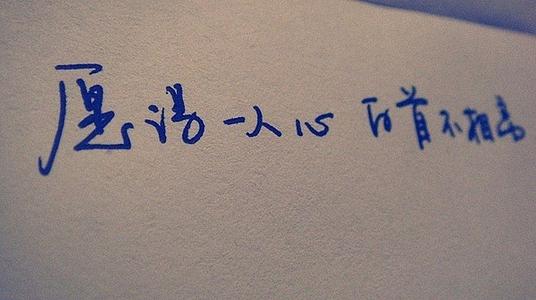 愿得一人心 白首不相离